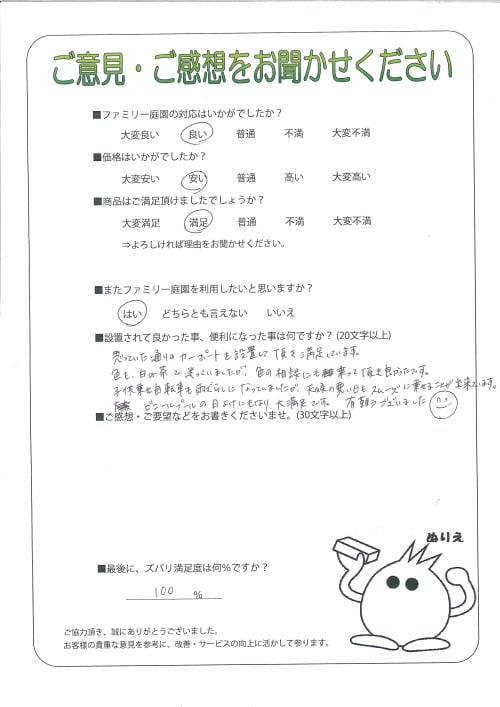 ご意見・ご感想をお聞かせください
■ファミリー庭園の対応はいかがでしたか？
大変良い 良い 普通 不満 大変不満
■価格はいかがでしたか？
大変安い 安い 普通 高い 大変高い
■商品はご満足頂けましたでしょうか？
大変満足 満足 普通 不満 大変不満
⇒よろしければ理由をお聞かせください。
■またファミリー庭園を利用したいと思いますか？
はい どちらとも言えない いいえ
■設置されて良かった事、便利になった事は何ですか？(20文字以上)
思っていた通りのカーポートを設置して頂き満足しています。
色も、白か茶で迷っていましたが、色の相談にも乗って頂き良かったです。
子供乗せ自転車も雨ざらしになっていましたが、天候の悪い日もスムーズに乗せることが出来ています。
ビニールプールの日よけにもなり大満足です。 有難うございました
■ご感想・ご要望などをお書きくださいませ。(30文字以上)
ぬりえ
■最後に、ズバリ満足度は何％ですか？
100 ％
ご協力頂き、誠にありがとうございました。
お客様の貴重な意見を参考に、改善・サービスの向上に活かして参ります。